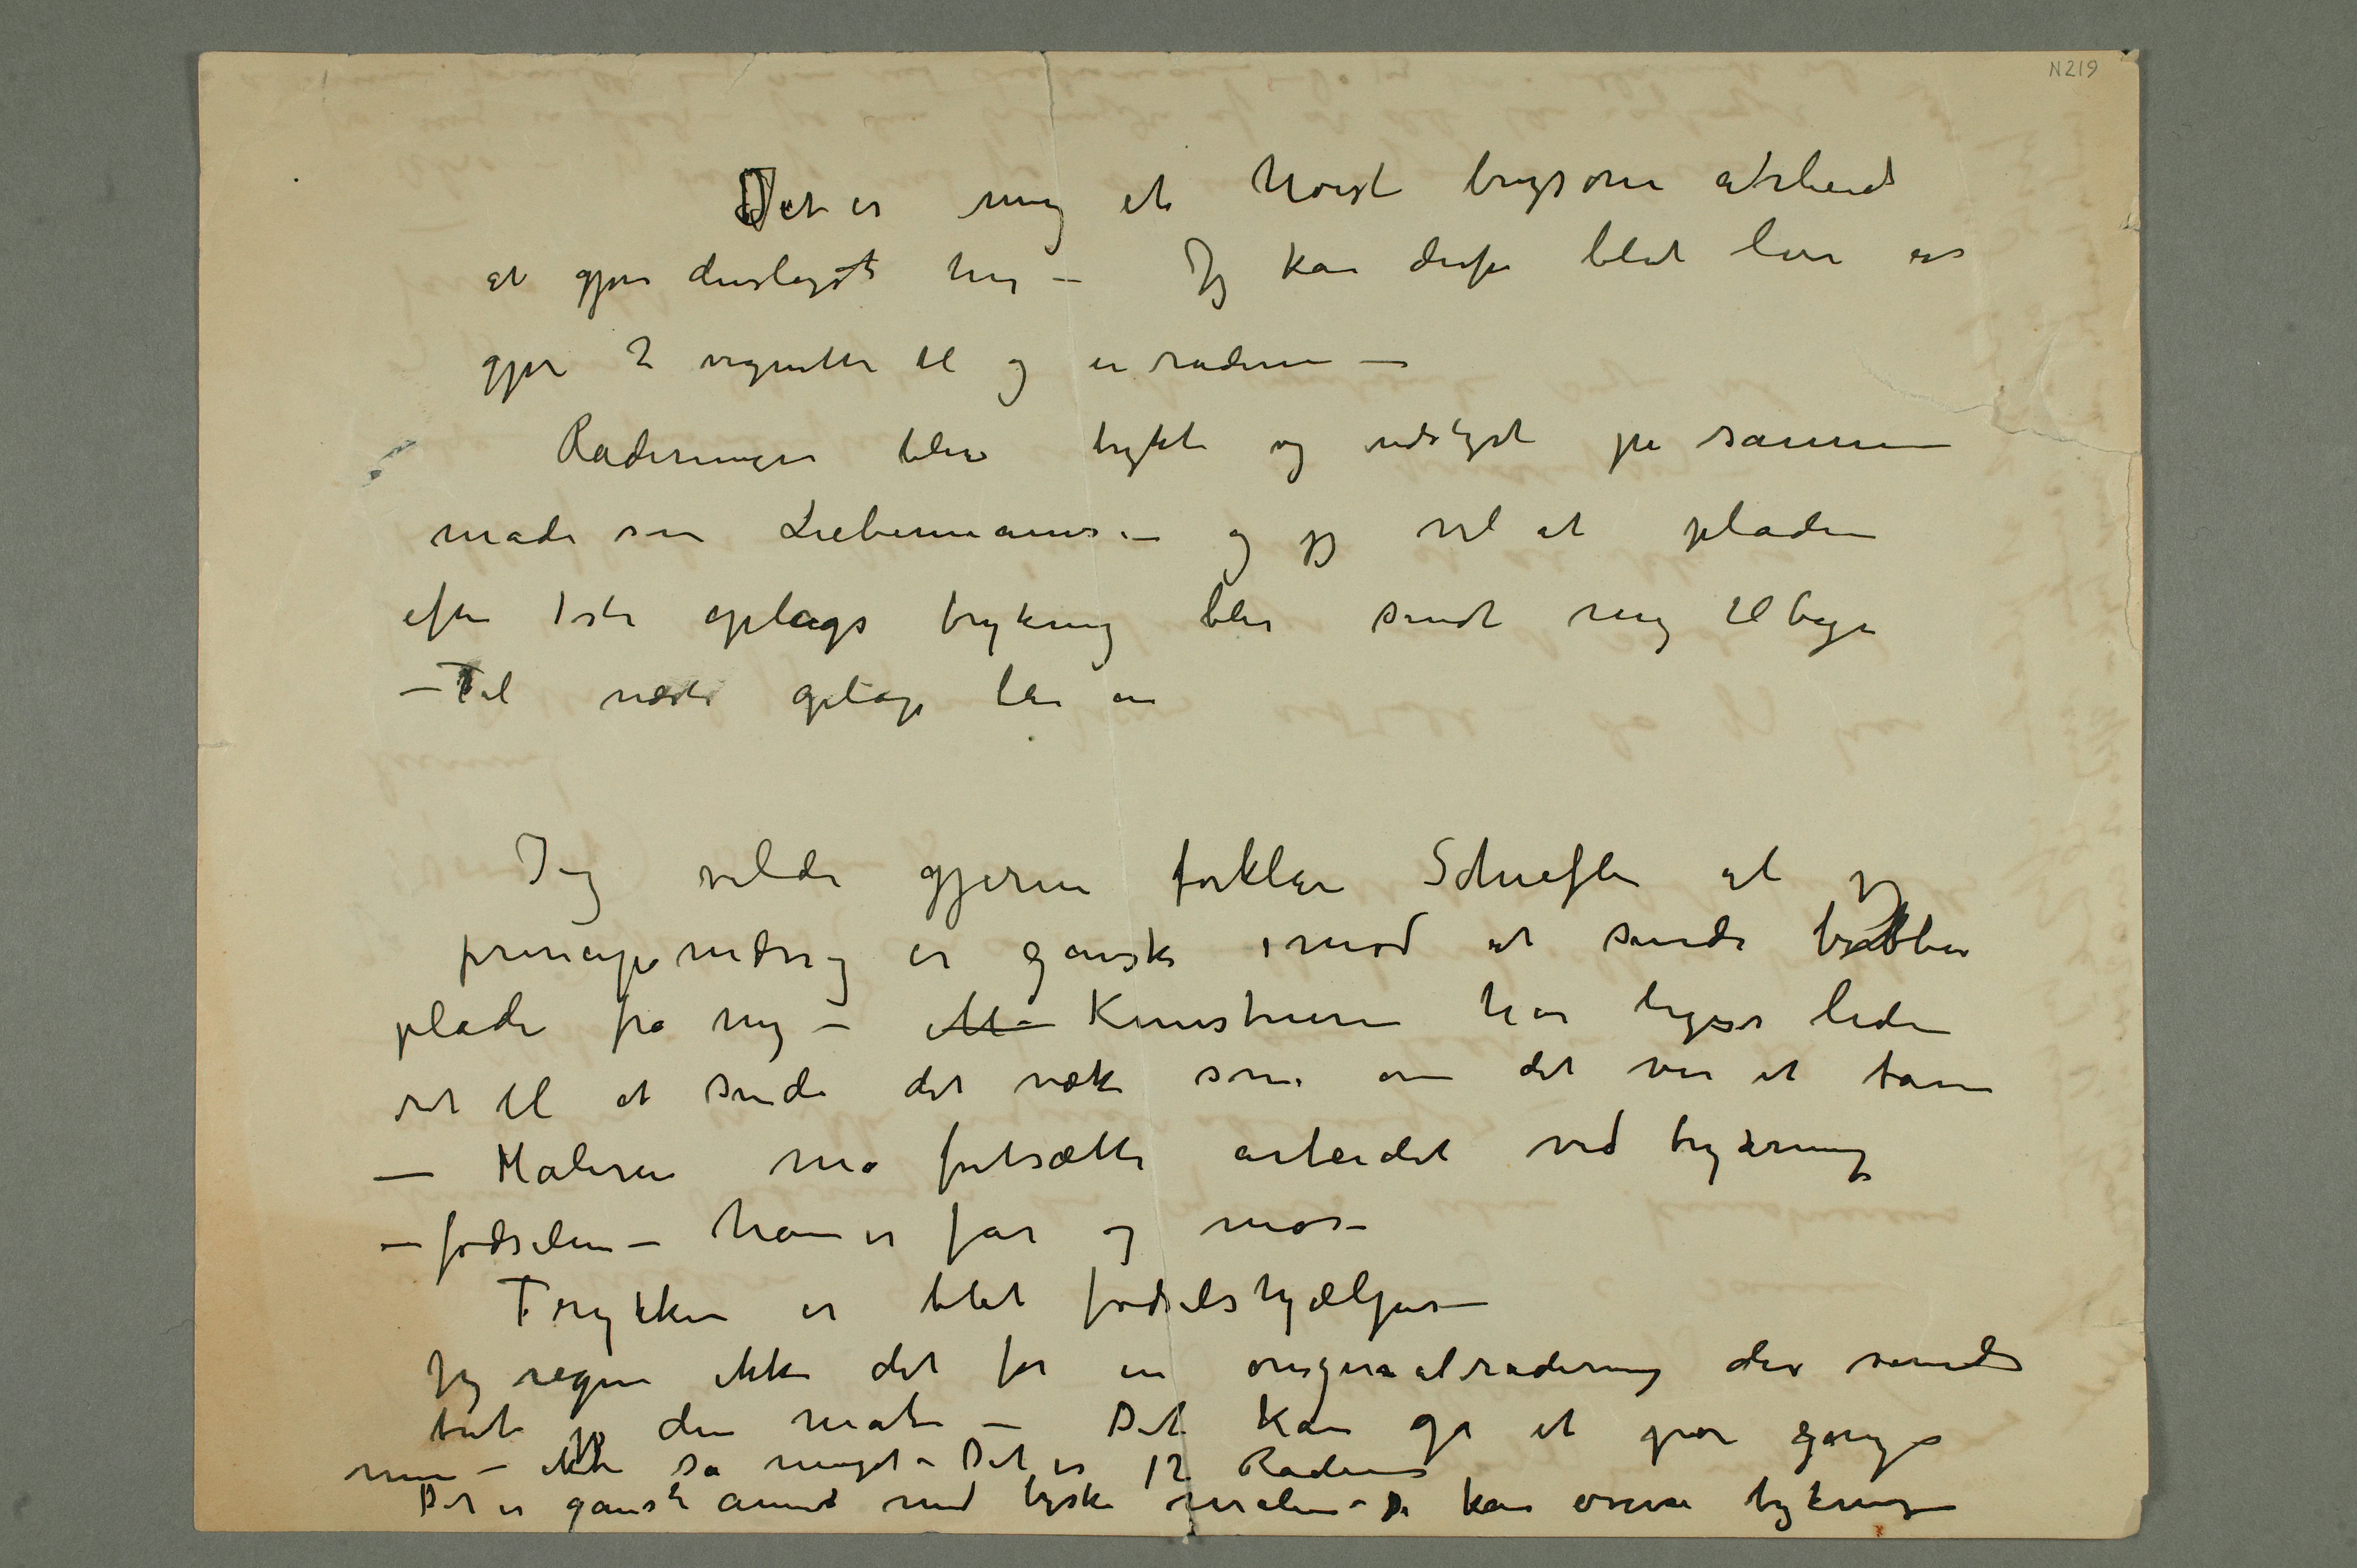 N219
Det er mig et høist brysomt arbeid
at gjøre deslags her – Jg kan derfor blot love at
gjøre 2 vignetter til og en radering –
Raderingen blir trykt og udstyrt på samme
måde som Liebermanns – og jg vil at pladen
efter 1ste oplags trykning blir sendt mig tilbage
– Til næste oplag blir en
Jeg vilde gjerne forklare Schiefler at jg
principmæssig er ganske imod at sende kobber
plader fra mig – Kunstneren har ligeså liden
ret til at sende det væk som om det var et barn
– Maleren må fortsætte arbeidet ved trykning
– fødselen – han er far og mor –
Trykkeren er blot fødselshjælper –
Jg regner ikke det for en originalradering der sendes
bort på den måte – Det kan gå et par gange
men – ikke så meget – Det er 12 Raderinger
Det er ganske annet med tyske malere – De kan overse trykningen